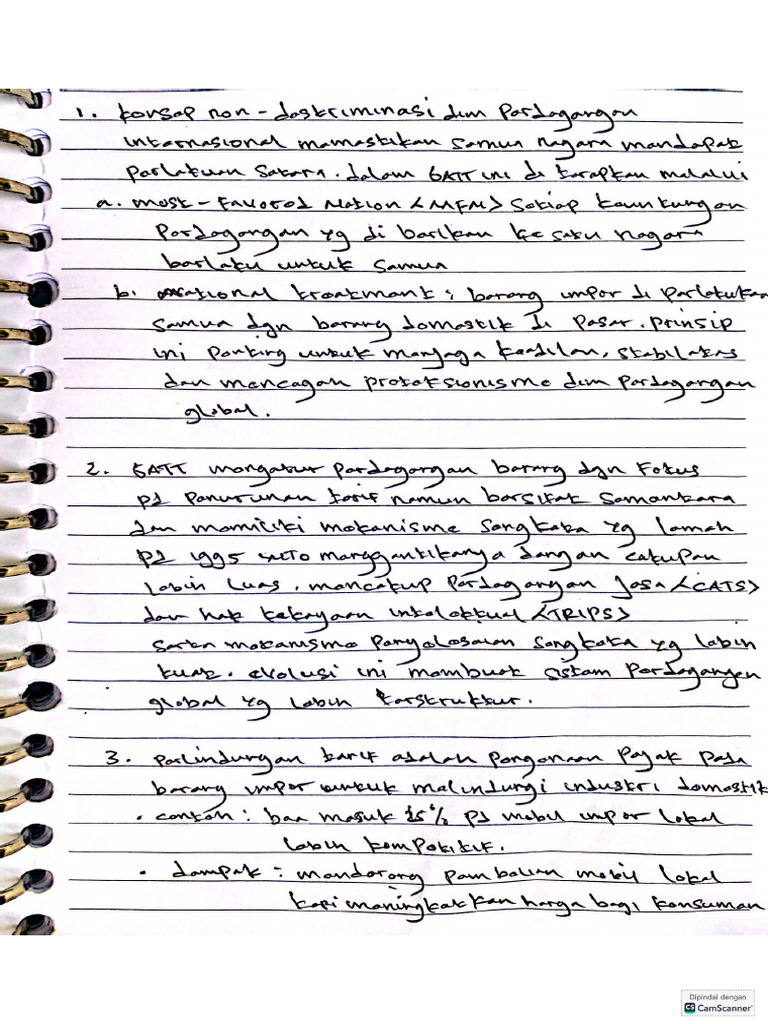 1. Konsep non-deskriminasi dlm Perdagangan
internasional memastikan semua negara mendapat
perlakuan setara. dalam GATT ini di terapkan melalui
a. most-Favored Nation <MFN> setiap keuntungan
Perdagangan yg di berikan ke satu negara
berlaku untuk semua
b. national treatment : barang impor di perlakukan
semua dgn barang domestik di pasar. prinsip
ini penting untuk menjaga keadilan, stabilitas
dan mencegah proteksionisme dlm perdagangan
global.
2. GATT mengatur perdagangan barang dgn Fokus
pd penurunan tarif namun bersifat sementara
dan memiliki mekanisme sengketa yg lemah
pd 1995 WTO menggantikanya dengan cakupan
lebih luas. mencakup Perdagangan Jasa <GATS>
dan hak kekayaan intelektual <TRIPS>
serta mekanisme penyelesaian sengketa yg lebih
kuat. evolusi ini membuat sistem perdagangan
global yg lebih terstruktur.
3. perlindungan tarif adalah pengenaan Pajak pada
barang impor untuk melindungi industri domestik
• contoh : bea masuk 25% pd mobil impor lokal
lebih kompetitif.
• dampak : mendorong pembelian mobil lokal
tapi meningkatkan harga bagi konsumen
Dipindai dengan
CS CamScanner